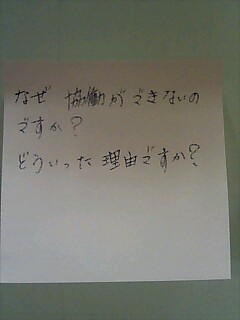 なぜ 協働ができないの
ですか？
どういった理由ですか？